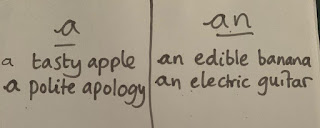 a
an
a tasty apple
a polite apology
an edible banana
an electric guitar